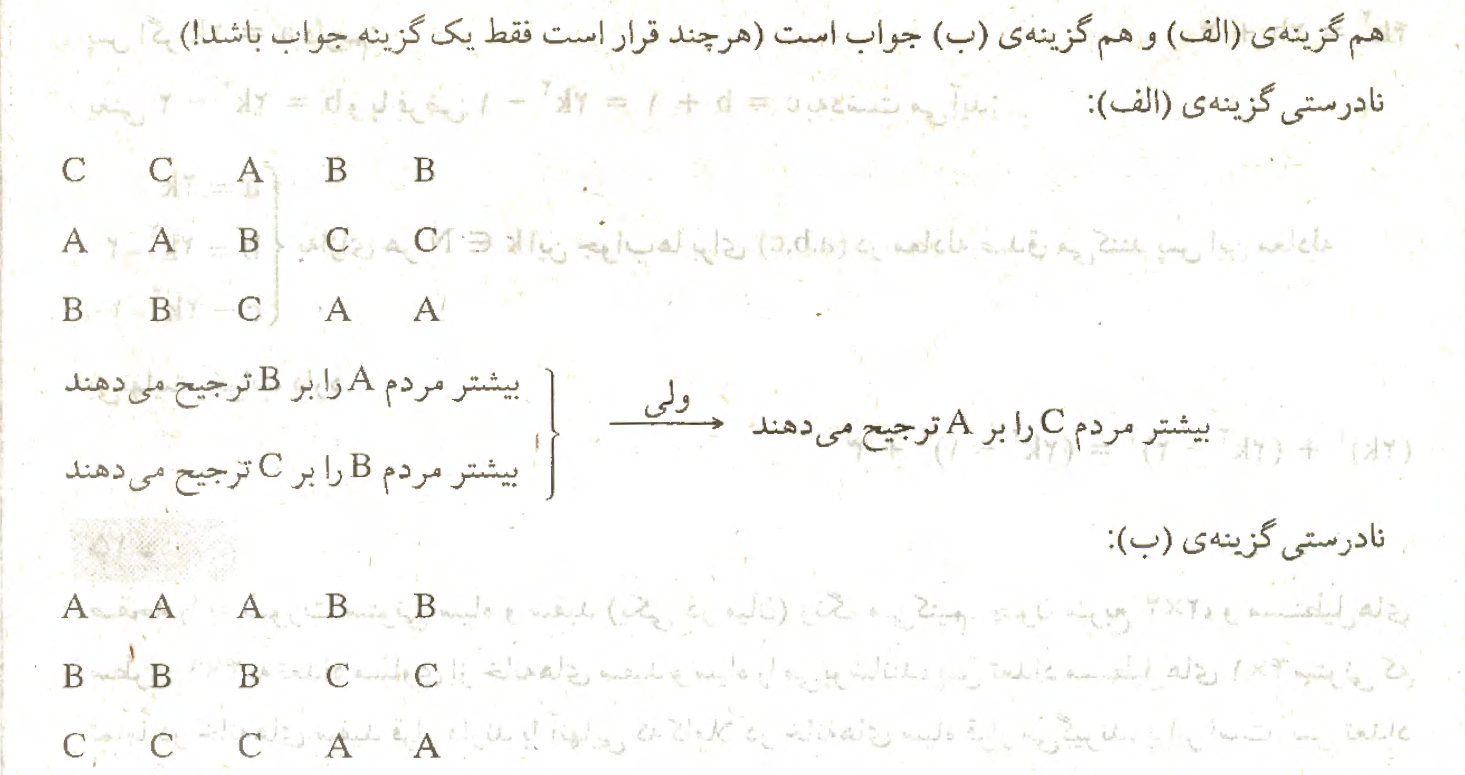 هم گزینه‌ی (الف) و هم گزینه‌ی (ب) جواب است (هرچند قرار است فقط یک گزینه جواب باشد!)
نادرستی گزینه‌ی (الف):
C C A B B
A A B C C
B B C A A
بیشتر مردم A را بر B ترجیح می‌دهند
بیشتر مردم B را بر C ترجیح می‌دهند
ولی
بیشتر مردم C را بر A ترجیح می‌دهند
نادرستی گزینه‌ی (ب):
A A A B B
B B B C C
C C C A A